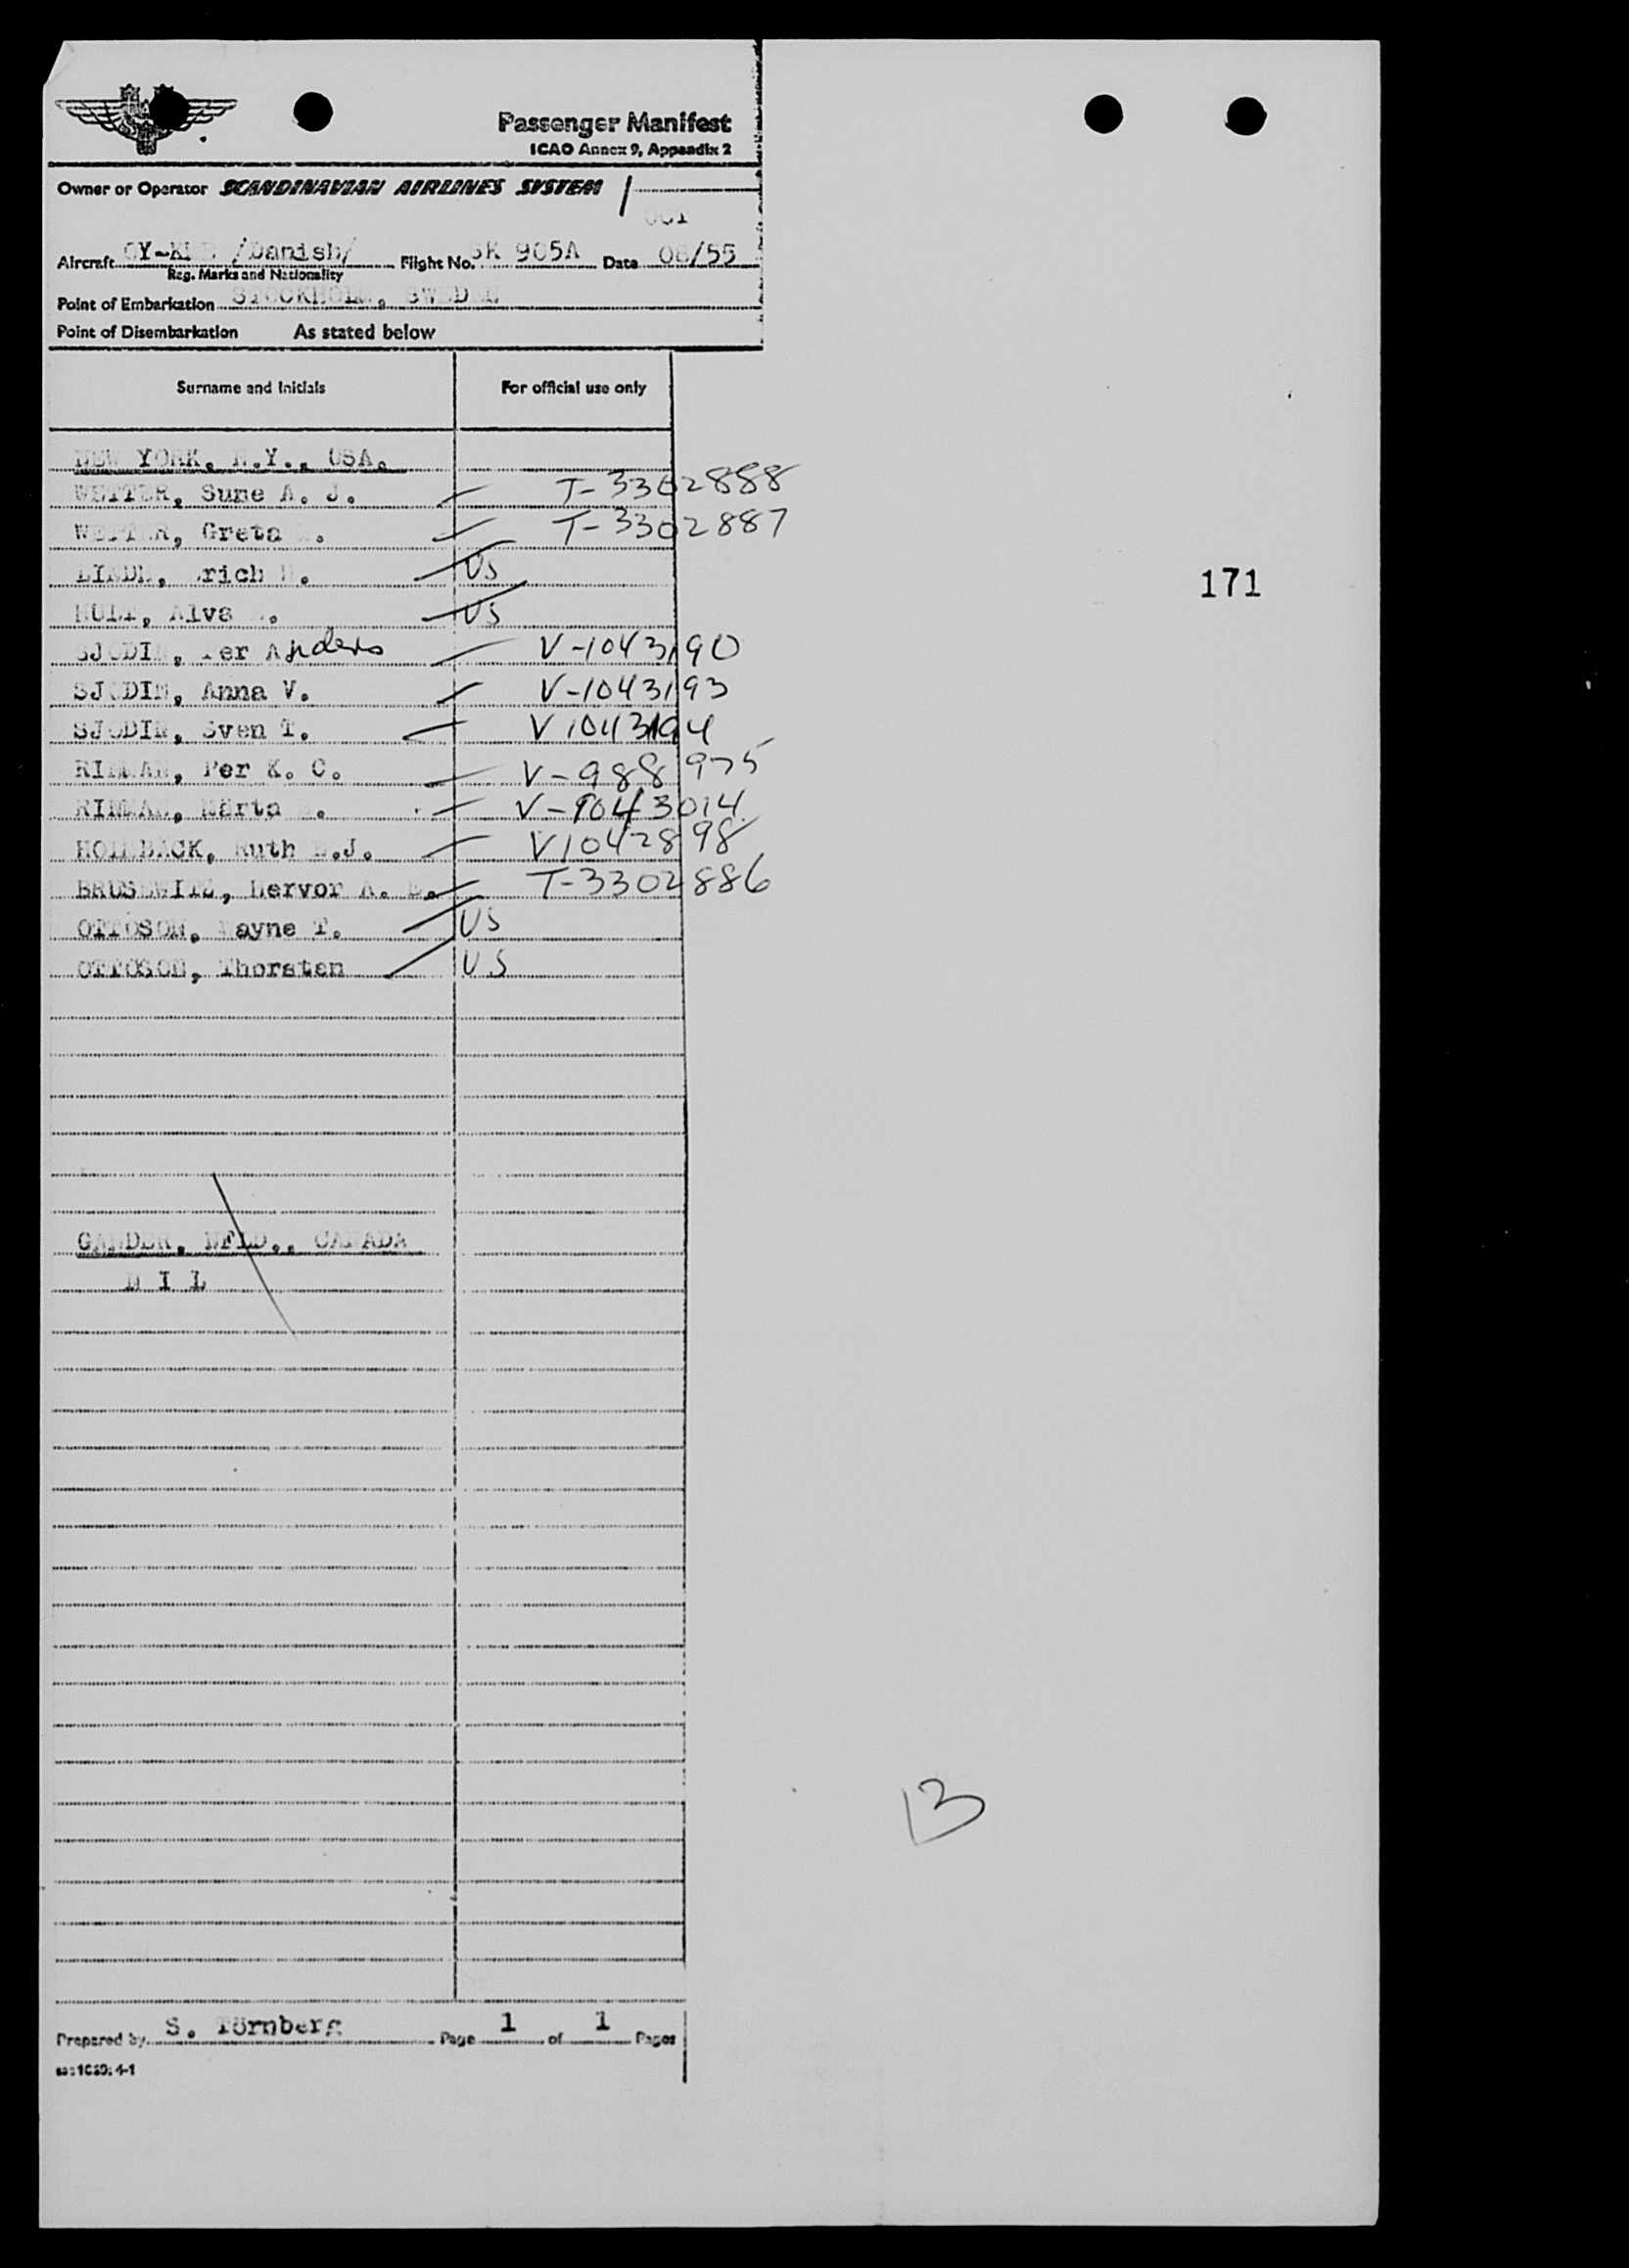 Passenger Manifest
ICAO Annex 9, Appendix 2
Owner or Operator SCANDINAVIAN AIRLINES SYSTEM
OCT
Aircraft /Danish/ Flight No. SK 905A Date 08/55
Reg. Marks and Nationality
Point of Embarkation STOCKHOLM, SWEDEN
Point of Disembarkation As stated below
Surname and Initials For official use only
NEW YORK, N.Y., USA.
WETTER, Sune A. J. T-3302888
WETTER, Greta T-3302887
US
171
Alva US
SJODIN, Per Anders V-1043190
SJODIN, Anna V. V-1043193
SJODIN, Sven T. V 1043194
RINMAN, Per K. C. V-988975
RINMAN, Märta V-1043014
Ruth V1042898
BRUSEWITZ, Hervor A. T-3302886
OTTOSON, Wayne T. US
OTTOSON, Thorsten US
GANDER, NFLD., CANADA
N I L
13
Prepared by S. Törnberg Page 1 of 1 Pages